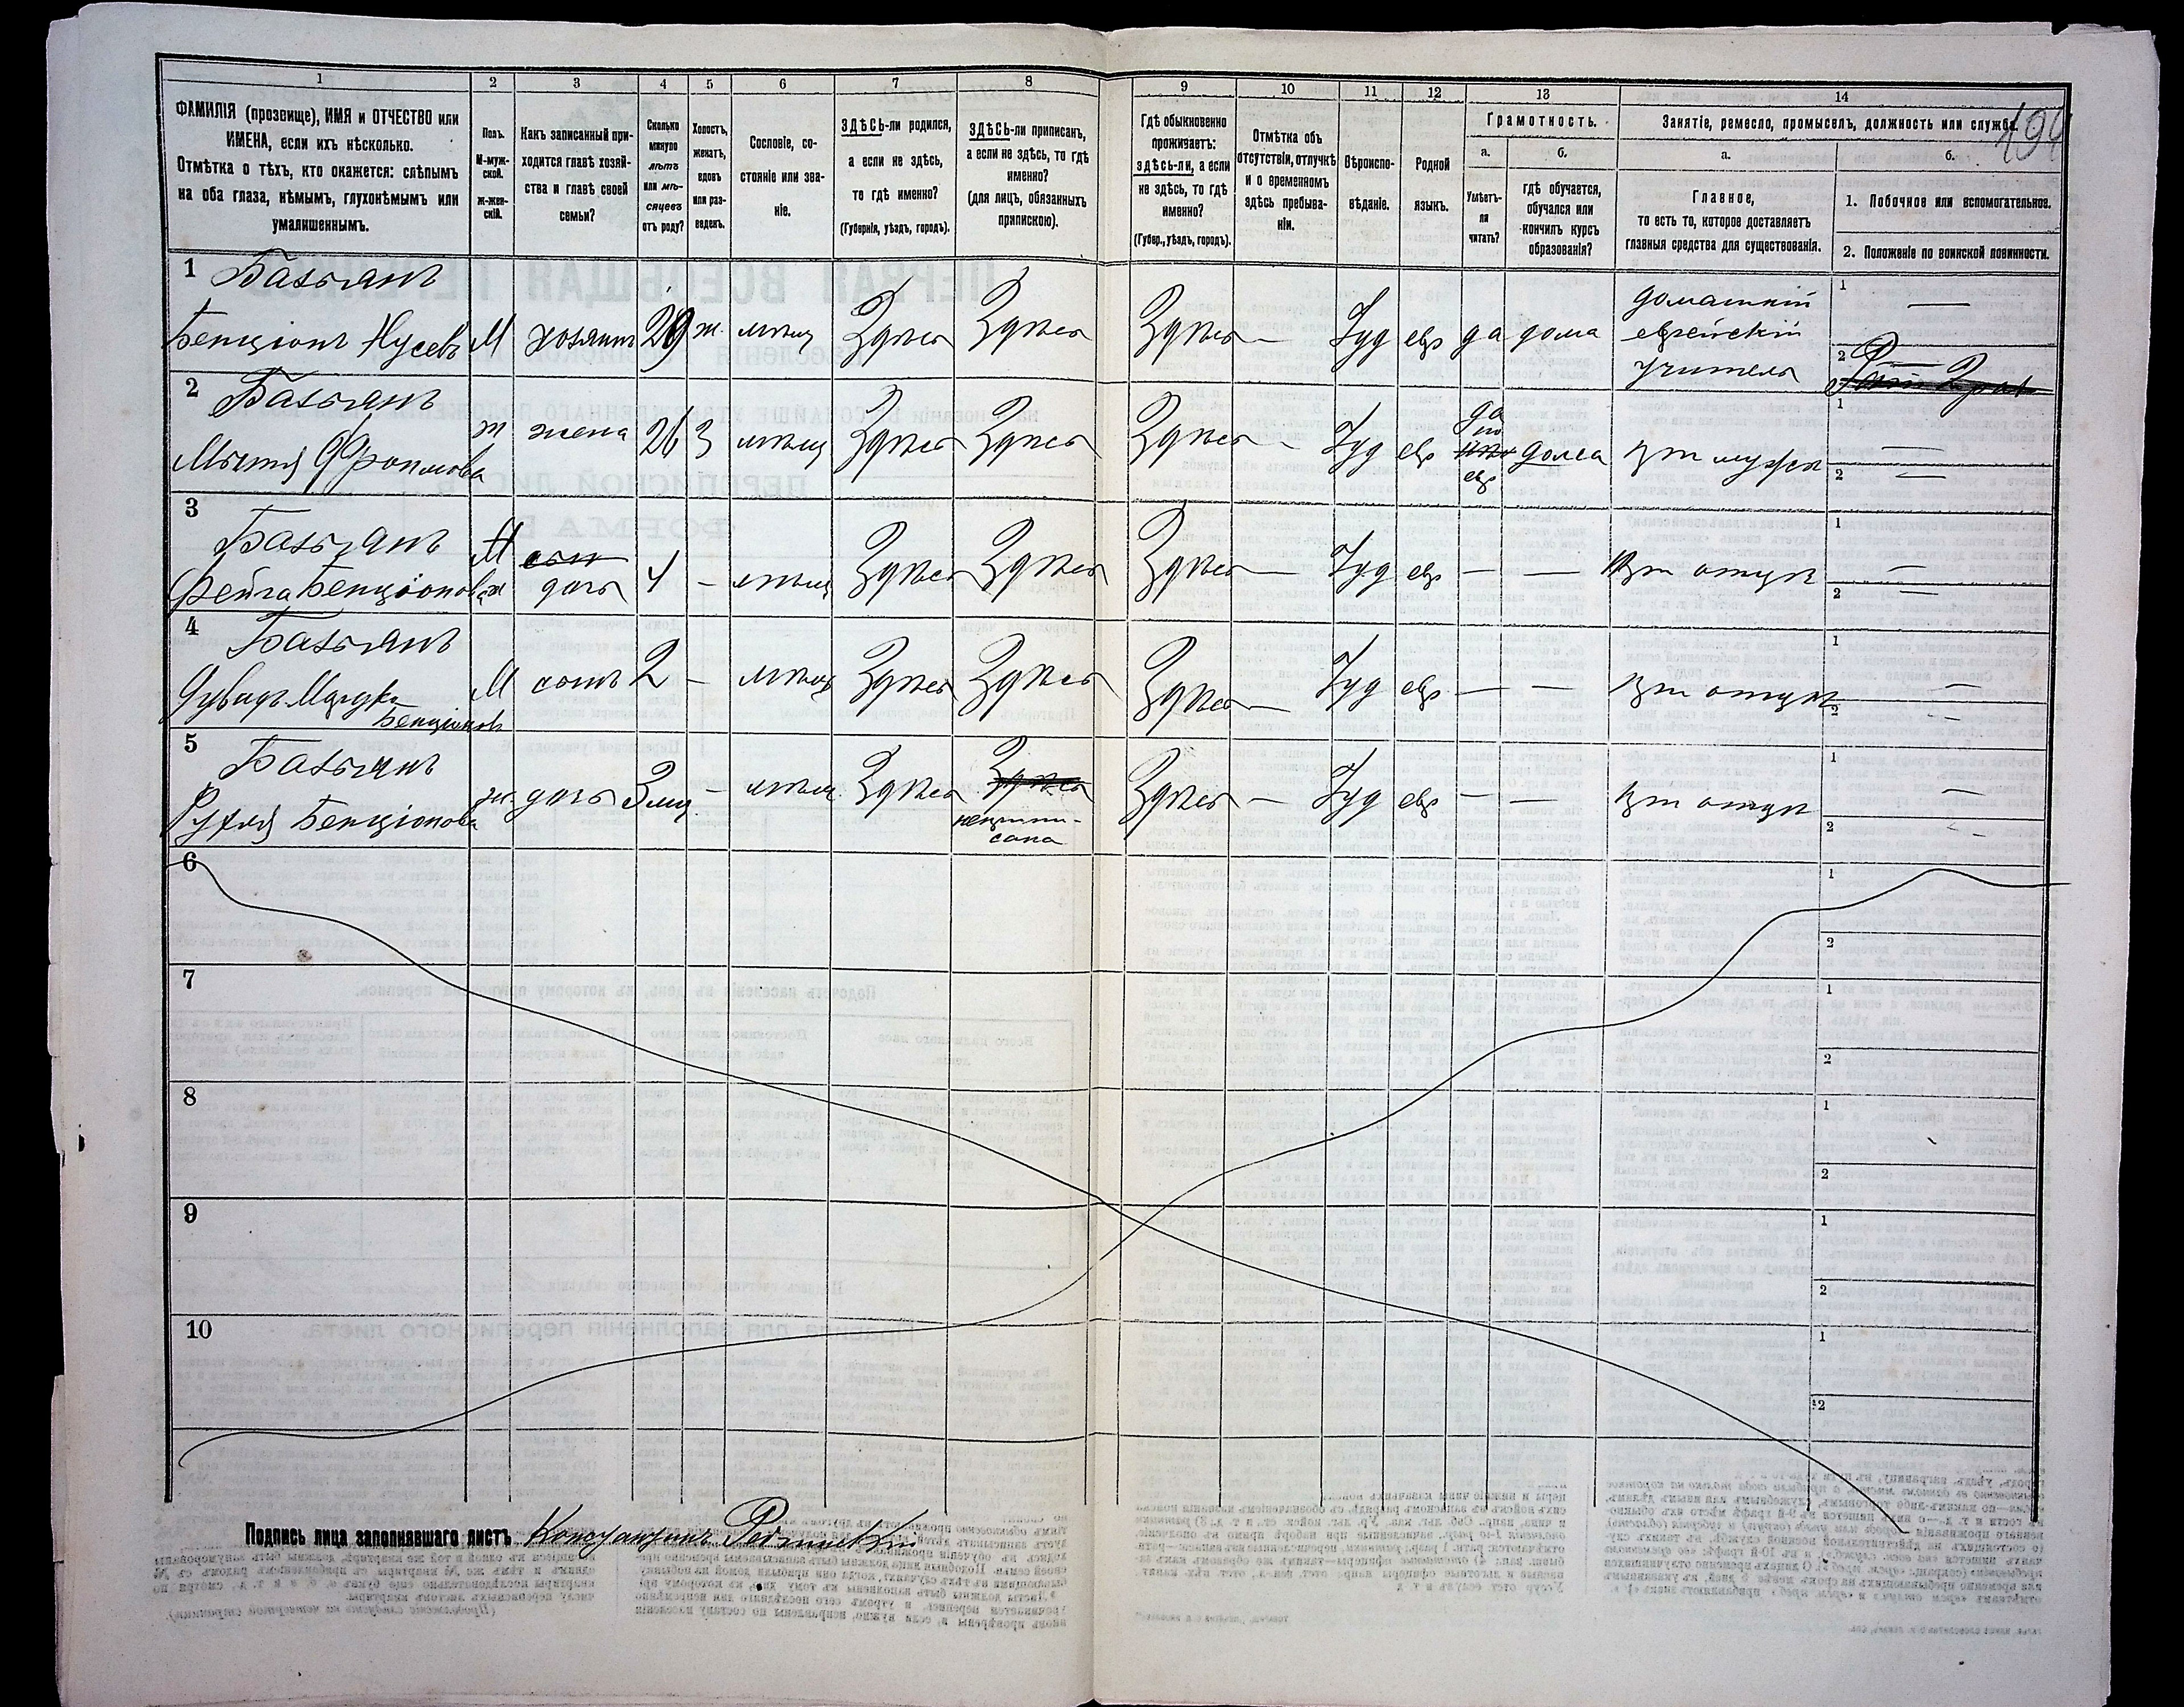 1
2
3
4
5
6
7
8
9
10
11
12
13
14
ФАМИЛІЯ (прозвище), ИМЯ и ОТЧЕСТВО или
ИМЕНА, если ихъ нѣсколько.
Отмѣтка о тѣхъ, кто окажется: слѣпымъ
на оба глаза, нѣмымъ, глухонѣмымъ или
умалишеннымъ.
Полъ.
М-муж-
ской.
ж-жен-
скій.
Какъ записанный при-
ходится главѣ хозяй-
ства и главѣ своей
семьи?
Сколько
минуло
лѣтъ
или мѣ-
сяцевъ
отъ роду?
Холостъ,
женатъ,
вдовъ
или раз-
веденъ.
Сословіе, со-
стояніе или зва-
ніе.
ЗДѢСЬ-ли родился,
а если не здѣсь,
то гдѣ именно?
(Губернія, уѣздъ, городъ).
ЗДѢСЬ-ли приписанъ,
а если не здѣсь, то гдѣ
именно?
(для лицъ, обязанныхъ
припискою).
Гдѣ обыкновенно
проживаетъ:
здѣсь-ли, а если
не здѣсь, то гдѣ
именно?
(Губер., уѣздъ, городъ).
Отмѣтка объ
отсутствіи, отлучкѣ
и о временномъ
здѣсь пребыва-
ніи.
Вѣроиспо-
вѣданіе.
Родной
языкъ.
Грамотность.
а.
Умѣетъ-
ли
читать?
б.
гдѣ обучается,
обучался или
кончилъ курсъ
образованія?
Занятіе, ремесло, промыселъ, должность или служба.
а.
Главное,
то есть то, которое доставляетъ
главныя средства для существованія.
б.
1. Побочное или вспомогательное.
2. Положеніе по воинской повинности.
1 Базьянъ
Бенціонъ Нусевъ М хозяинъ 29 ж. мѣщ Здѣсь Здѣсь Здѣсь — Іуд евр да дома
домашній
еврейскій
учитель
1 —
2
2 Базьянъ
ж жена 26 З мѣщ Здѣсь Здѣсь Здѣсь — Іуд евр
да
по
евр
дома при мужѣ
1 —
2 —
3 Базьянъ
Фейга Бенціонова
М
ж
сынъ
дочь
4 — мѣщ Здѣсь Здѣсь Здѣсь — Іуд евр — — При отцѣ
1 —
2 —
4 Базьянъ
Бенціоновъ
М сынъ 2 — мѣщ Здѣсь Здѣсь Здѣсь — Іуд евр — — При отцѣ
1 —
2 —
5 Базьянъ
Рухля Бенціонова ж. дочь 3 мц. — мѣщ. Здѣсь Здѣсь
неприпи-
сана
Здѣсь — Іуд евр — — При отцѣ
1 —
2 —
6
1
2
7
1
2
8
1
2
9
1
2
10
1
2
Подпись лица заполнявшаго листъ